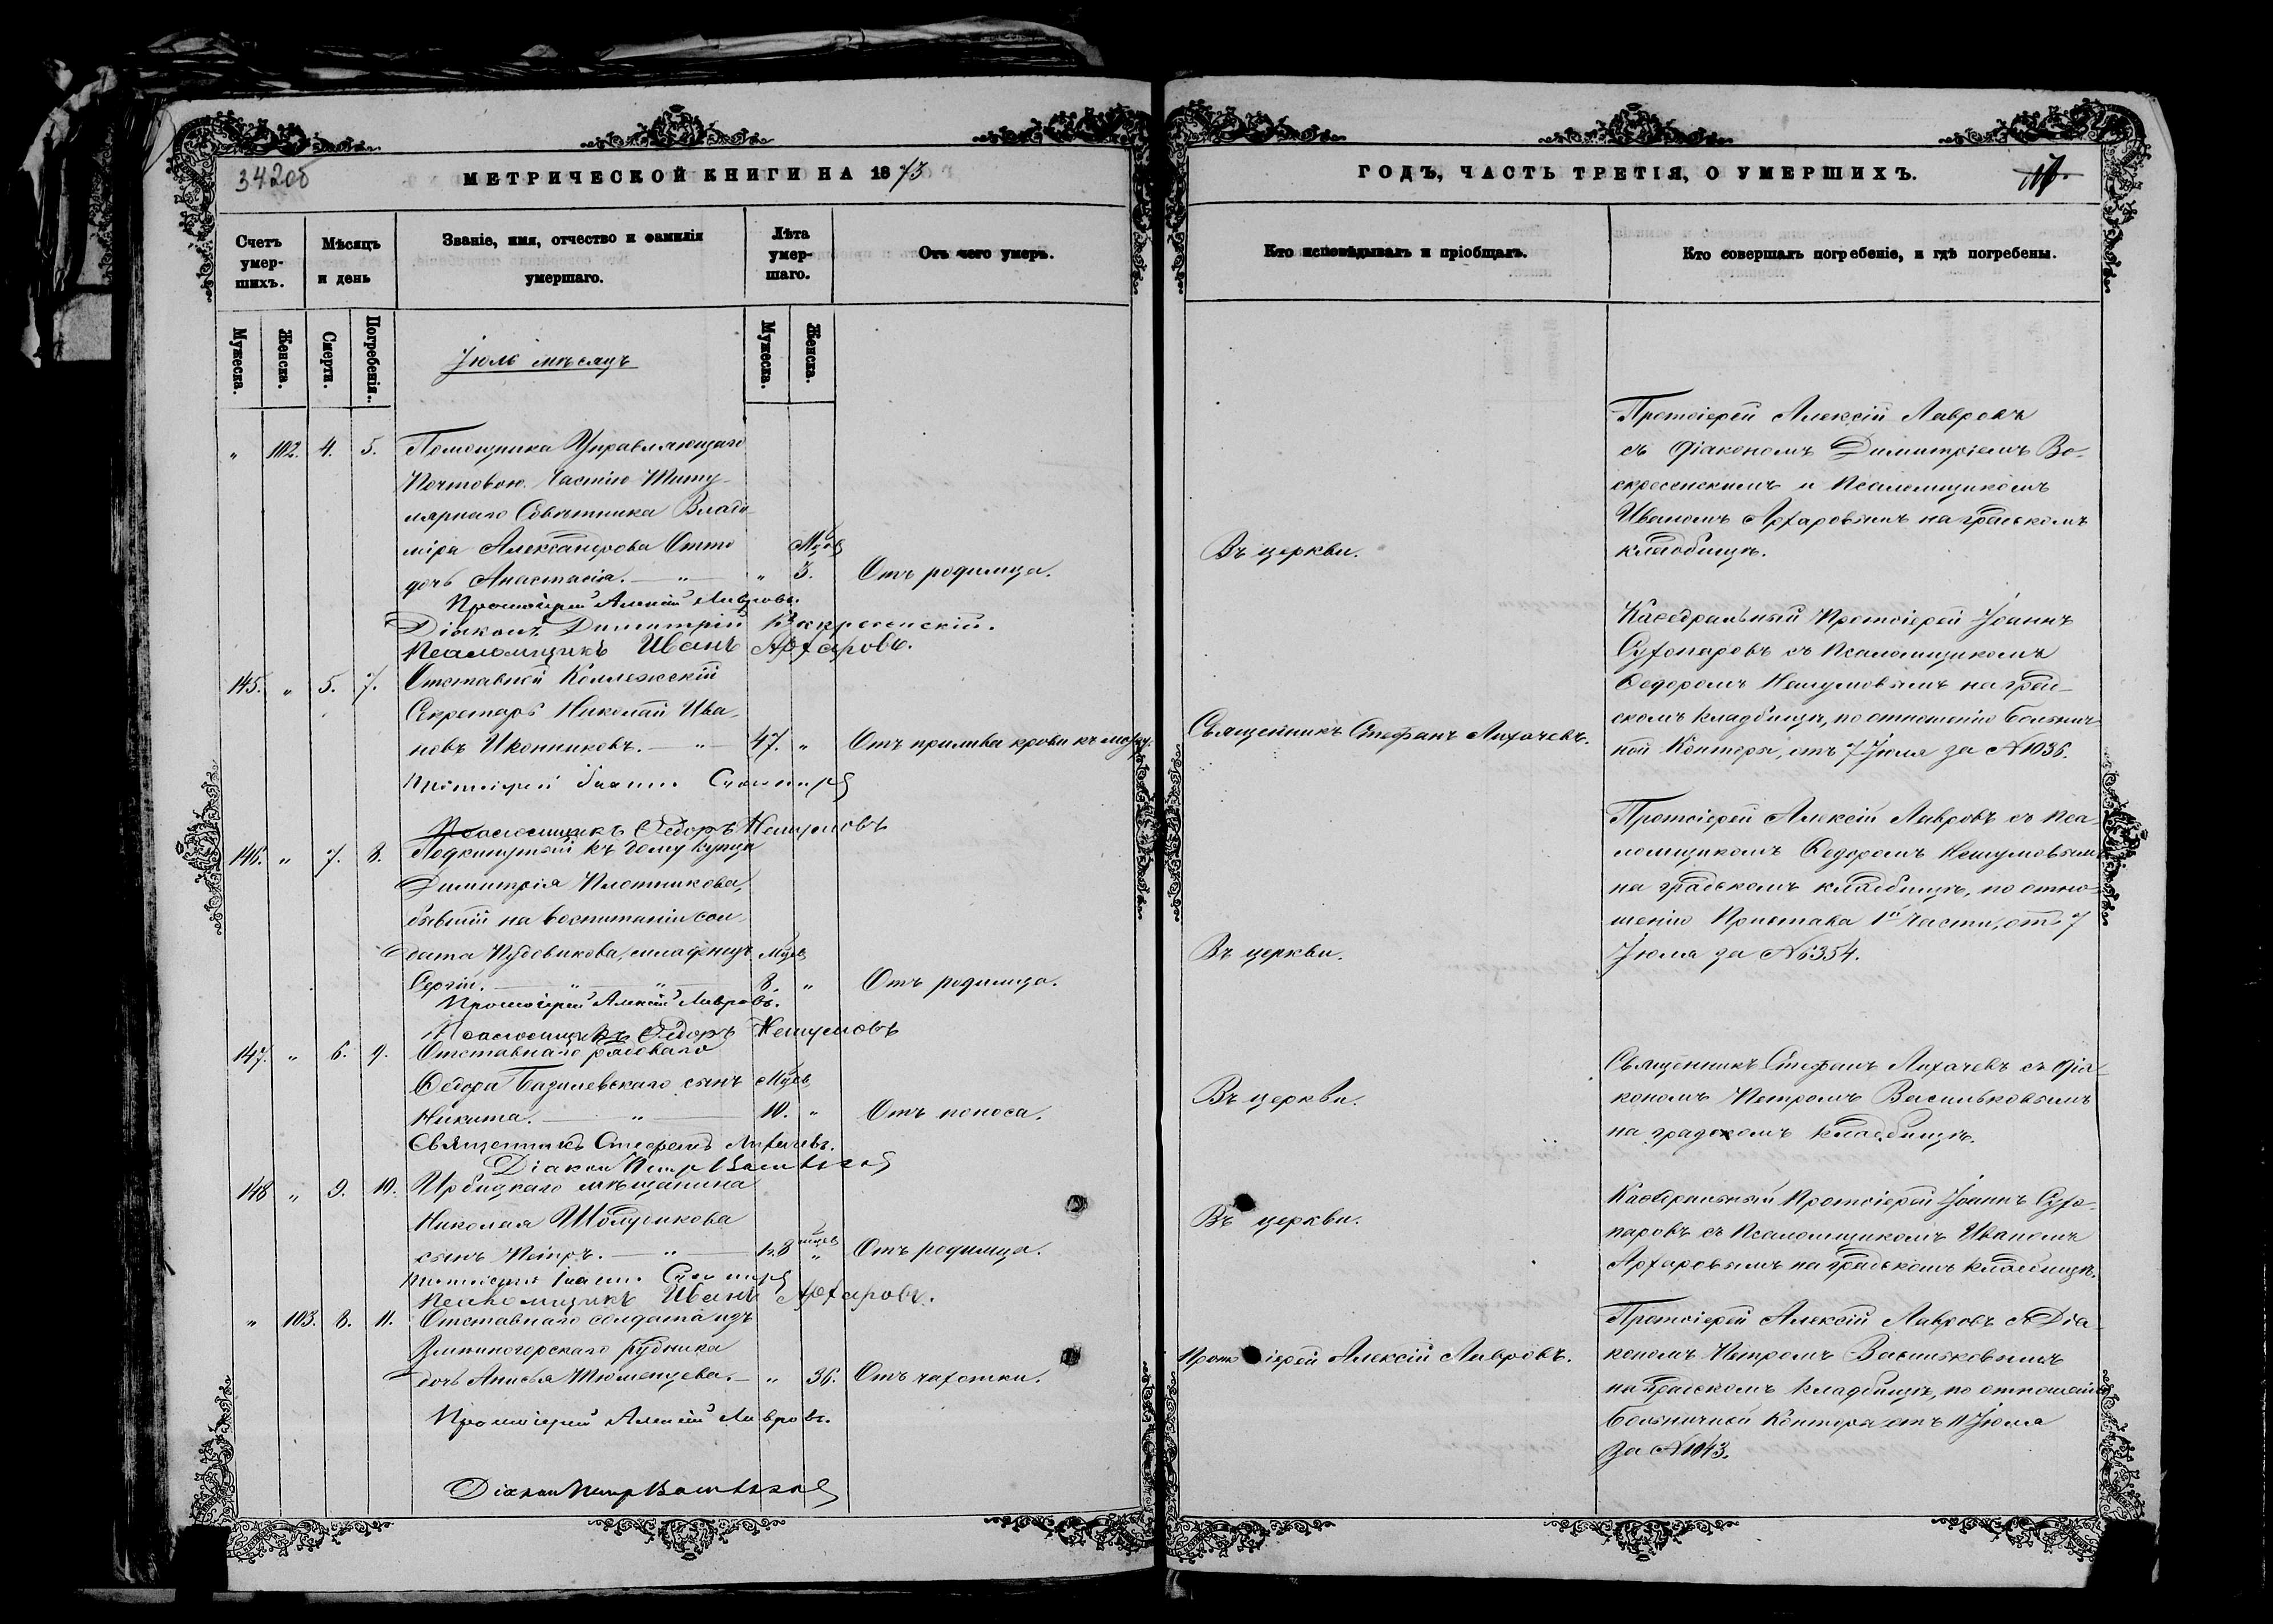 342об
МЕТРИЧЕСКОЙ КНИГИ НА 1873
Счетъ умершихъ.
Мѣсяцъ и день
Званіе, имя, отчество и фамилія умершаго.
Лѣта умершаго.
Отъ чего умеръ.
Мужеска.
Женска.
Смерти.
Погребенія.
Мужеска.
Женска.
Іюль мѣсяцъ
" 102. 4. 5. Помощника Управляющаго
Почтовою Частію Титу-
лярнаго Совѣтника Влади-
міра Александрова Отто
дочь Анастасія. — " — " 3. Отъ родимца.
Мѣсяц.
Протоіерей Алексій Лавровъ.
Діаконъ Димитрій Воскресенскій.
Псаломщикъ Иванъ Арфаровъ.
145. " 5. 7. Отставной Коллежскій
Секретарь Николай Ива-
новъ Иконниковъ. — " — 47. " Отъ прилива крови къ мозгу.
Протоіерей Іоаннъ
Псаломщикъ Ѳедоръ Нешумовъ
146. " 7. 8. Подкинутый къ дому купца
Димитрія Плотникова,
бывшій на воспитаніи сол-
дата Пудовикова, младенецъ мѣсяц.
Сергій. — " — " — 8. " Отъ родимца.
Протоіерей Алексій Лавровъ.
Псаломщикъ Ѳедоръ Нешумовъ
147. " 6. 9. Отставнаго рядоваго
Ѳедора Базилевскаго сынъ мѣсяц.
Никита. — " — 10. " Отъ поноса.
Священникъ Стефанъ Лихачевъ.
Діаконъ Петръ Васильковъ
148 " 9. 10. Ирбицкаго мѣщанина
Николая
сынъ Петръ. — " — 1г. 8 мѣсяц. " Отъ родимца.
Протоіерей Іоаннъ
Псаломщикъ Иванъ Арфаровъ.
" 103. 8. 11. Отставнаго солдата изъ
Змѣиногорскаго рудника
дочь Анисья Тюменцева. — " 36. Отъ чахотки.
Протоіерей Алексій Лавровъ.
Діаконъ Петръ Васильковъ
ГОДЪ, ЧАСТЬ ТРЕТІЯ, О УМЕРШИХЪ.
Кто исповѣдывалъ и пріобщалъ.
Кто совершалъ погребеніе, и гдѣ погребены.
Въ церкви.
Протоіерей Алексій Лавровъ
съ діакономъ Димитріемъ Во-
скресенскимъ и Псаломщикомъ
Иваномъ Арфаровымъ на градскомъ
кладбищѣ.
Священникъ Стефанъ Лихачевъ.
Каѳедральный Протоіерей Іоаннъ
Сухопаровъ съ Псаломщикомъ
Ѳедоромъ Нешумовымъ на град-
скомъ кладбищѣ, по отношенію Больнич-
ной Конторы, отъ 7 Іюля за №1036.
Въ церкви.
Протоіерей Алексій Лавровъ съ Пса-
ломщикомъ Ѳедоромъ Нешумовымъ
на градскомъ кладбищѣ, по отно-
шенію Пристава 1й части, отъ 7
Іюля за №6354.
Въ церкви.
Священникъ Стефанъ Лихачевъ съ діа-
кономъ Петромъ Васильковымъ
на градскомъ кладбищѣ.
Въ церкви.
Каѳедральный Протоіерей Іоаннъ Сухо-
паровъ съ Псаломщикомъ Иваномъ
Арфаровымъ на градскомъ кладбищѣ.
Протоіерей Алексій Лавровъ.
Протоіерей Алексій Лавровъ съ Діа-
кономъ Петромъ Васильковымъ
на градскомъ кладбищѣ, по отношенію
Больничной Конторы отъ 11 Іюля
за №1043.